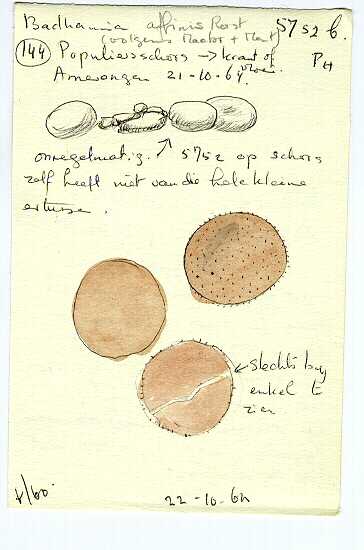 Badhamia affinis Rost 5752 b.
(volgens Nactor + Mart)
(144) Populierschors → krant of
Amerongen 21-10-64. PH
onregelmatig. 5752 op schors
zelf heeft niet van die hele kleine
ertussen.
slechts bij
enkel te
zien
22-10-64